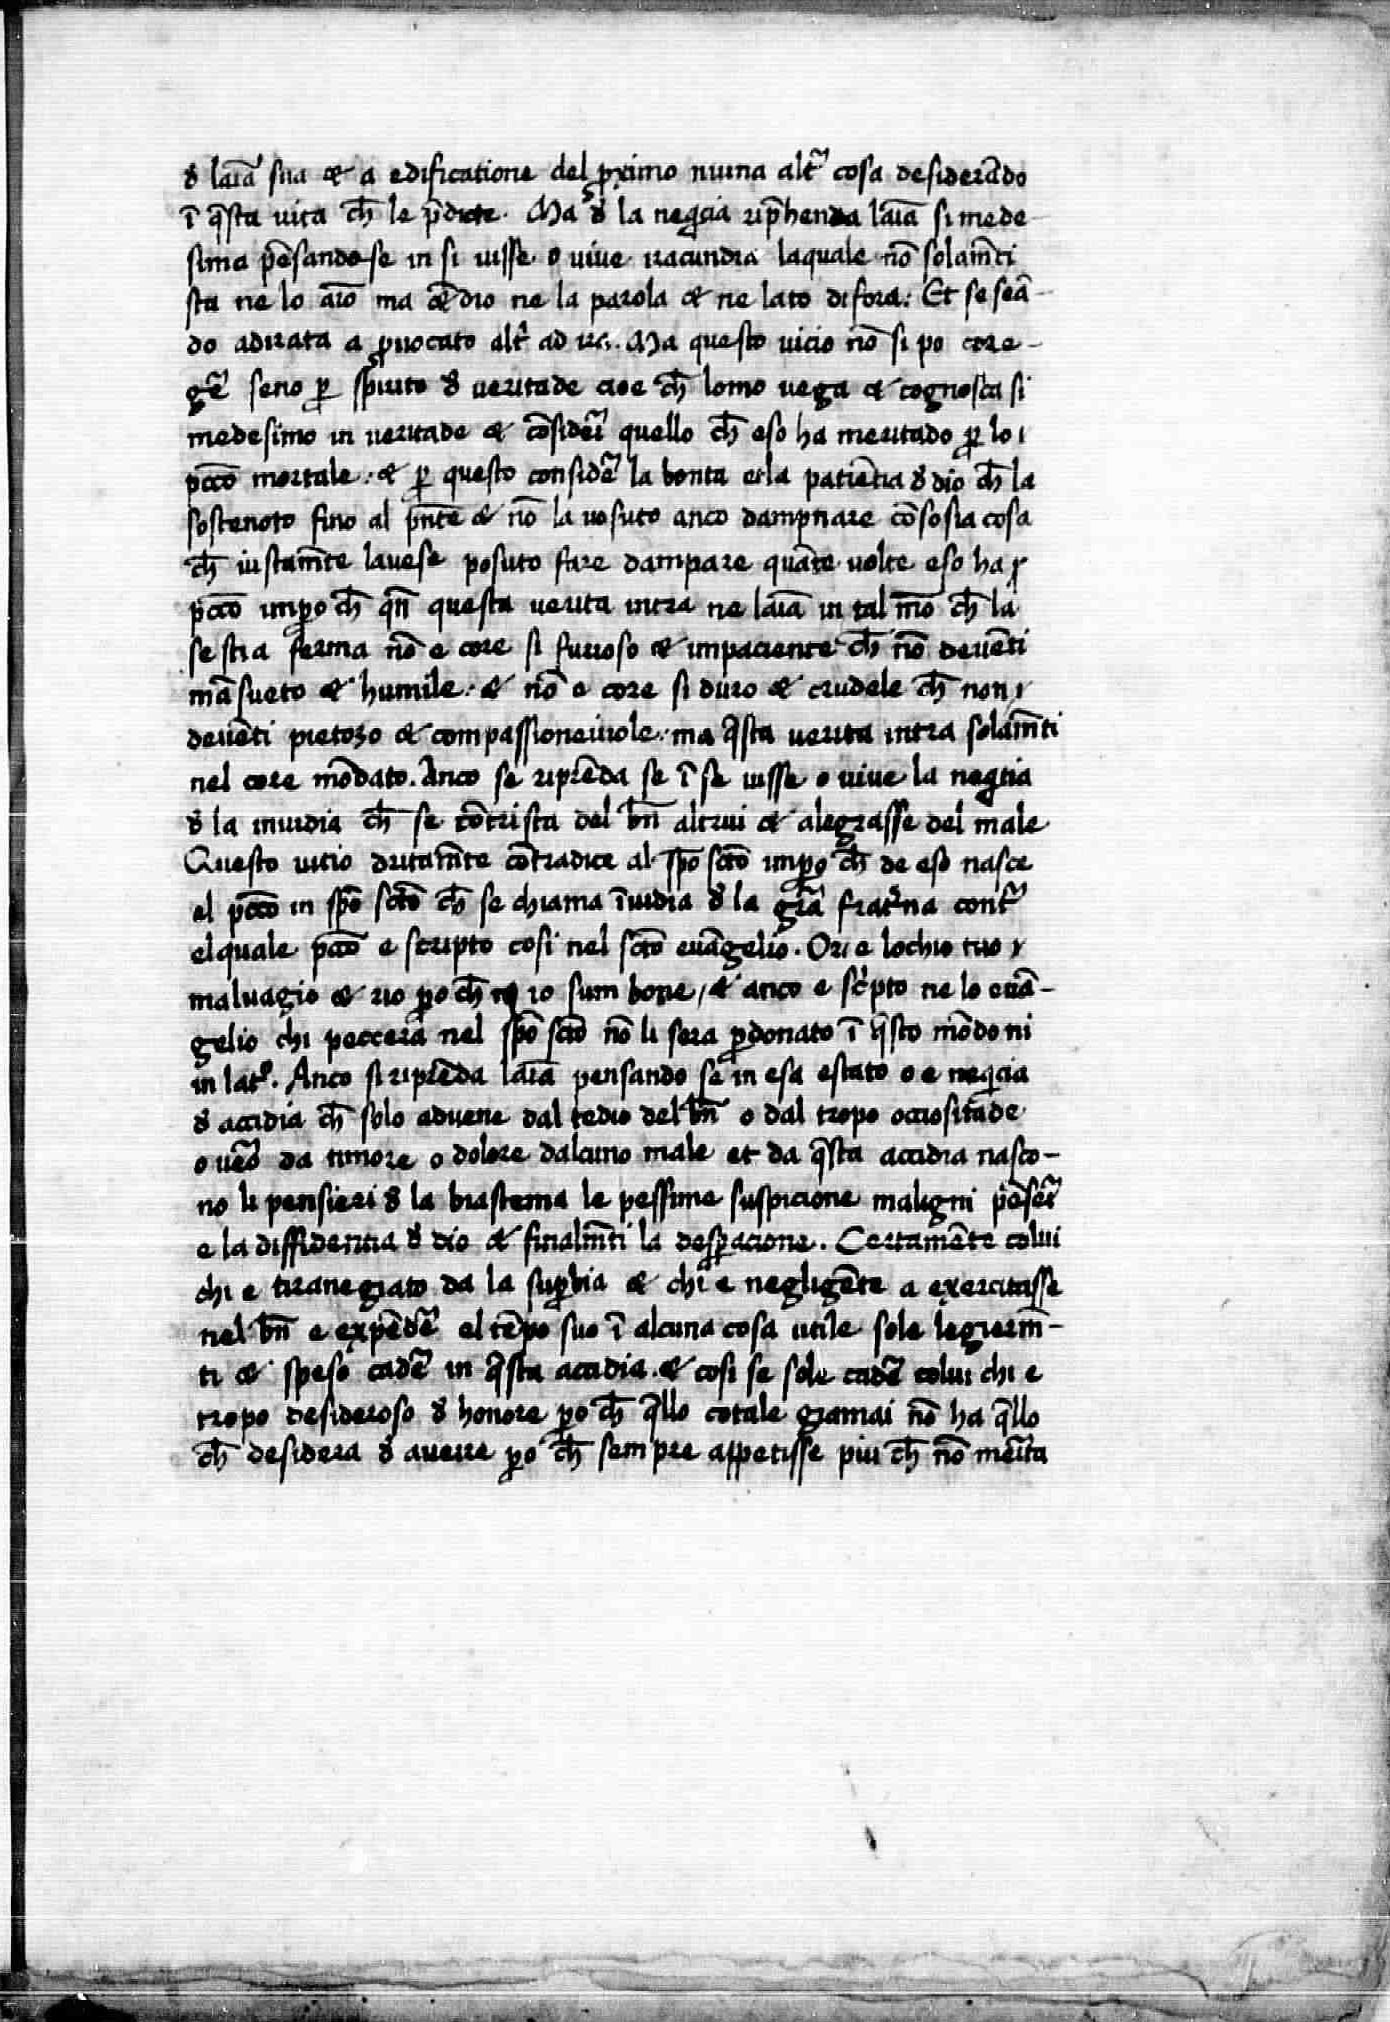 đ laīa sua & a edificatione del ꝓximo niuna alt͂ cosa desiderādo
ī q̄sta vita ch̄ le p̄dicte. Ma đ la neq̄cia rip̄henda laīa si mede
sima pēsando se in si uisse o vive iracundia laquale nō solam̄ti
sta ne lo aīo ma & ne la parola & ne lato di fora: Et se seā-
do adirata a ꝓuocato alt̓ ad ira. Ma questo uicio nō si po core-
ge͂ seno ꝑ spiuto đ ueritade cioe ch̄ lomo uega & cognosca si
medesimo in ueritade & cōside͂i quello ch̄ eso ha meritado ꝑ lo
pcc̄o mortale. & ꝑ questo conside͂ la bonta et la patiētia đ dio ch̄ la
sostenoto fino al pn̄te & nō la uosuto anco dampnare cōsosia cosa
ch̄ iustam̄te lauese posuto fare dampare quāte uolte eso ha
pcc̄o impo ch̄ qn̄ questa uerita intra ne laīa in tal mō ch̄ la
se stia ferma nō e core si furioso & impaciente ch̄ nō deuēti
māsueto & humile. & nō e core si duro & crudele ch̄ non
deuēti pietozo & compassioneuole. ma q̄sta uerita intra solam̄ti
nel core mōdato. Anco se riprēda se ī se uisse o vive la neq̄tia
đ la inuidia ch̄ se cōtrista del bn̄ altrui & alegrasse del male
Questo uitio dritam̄te cōtradice al spō sctō impo ch̄ de eso nasce
el pcc̄o in spō sctō ch̄ se chiama īuidia đ la gr̄a frat̓na cont͂
elquale pcc̄o e scripto cosi nel sctō euāgelio. Or e lochio tuo
maluagio & rio ꝑo ch̄ io sum bone, & anco e sc̓pto ne lo euā-
gelio chi peccera nel spō sctō nō li sera ꝑdonato ī q̄sto mōdo ni
in lat͂. Anco si riprēda laīa pensando se in esa estato o e neq̄cia
đ accidia ch̄ solo aduene dal tedio del bn̄ o dal tropo occiositade
o ue͂o da timore o dolore dalcuno male et da q̄sta accidia nasco-
no li pensieri đ la biastema le pessime suspicione maligni pēse͂i
e la diffidentia đ dio & finalm̄ti la desꝑacione. Certamēte colui
chi e tiranegiato da la suꝑbia & chi e negligēte a exercitasse
nel bn̄ e expēde͂ el tēpo suo ī alcuna cosa utile sole legierm̄-
ti & speso cade͂ in q̄sta accidia. & cosi se sole cade͂ colui chi e
tropo desideroso đ honore ꝑo ch̄ q̄llo cotale giamai nō ha q̄llo
ch̄ desidera đ auere ꝑo ch̄ sempre appetisse piu ch̄ nō me͂ita